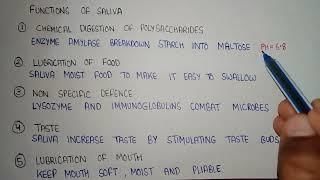 FUNCTIONS OF SALIVA
① CHEMICAL DIGESTION OF POLYSACCHARIDES
ENZYME AMYLASE BREAKDOWN STARCH INTO MALTOSE PH = 6.8
② LUBRICATION OF FOOD
SALIVA MOIST FOOD TO MAKE IT EASY TO SWALLOW
③ NON SPECIFIC DEFENCE
LYSOZYME AND IMMUNOGLOBULINS COMBAT MICROBES
④ TASTE
SALIVA INCREASE TASTE BY STIMULATING TASTE BUDS
⑤ LUBRICATION OF MOUTH
KEEP MOUTH SOFT, MOIST AND PLIABLE.